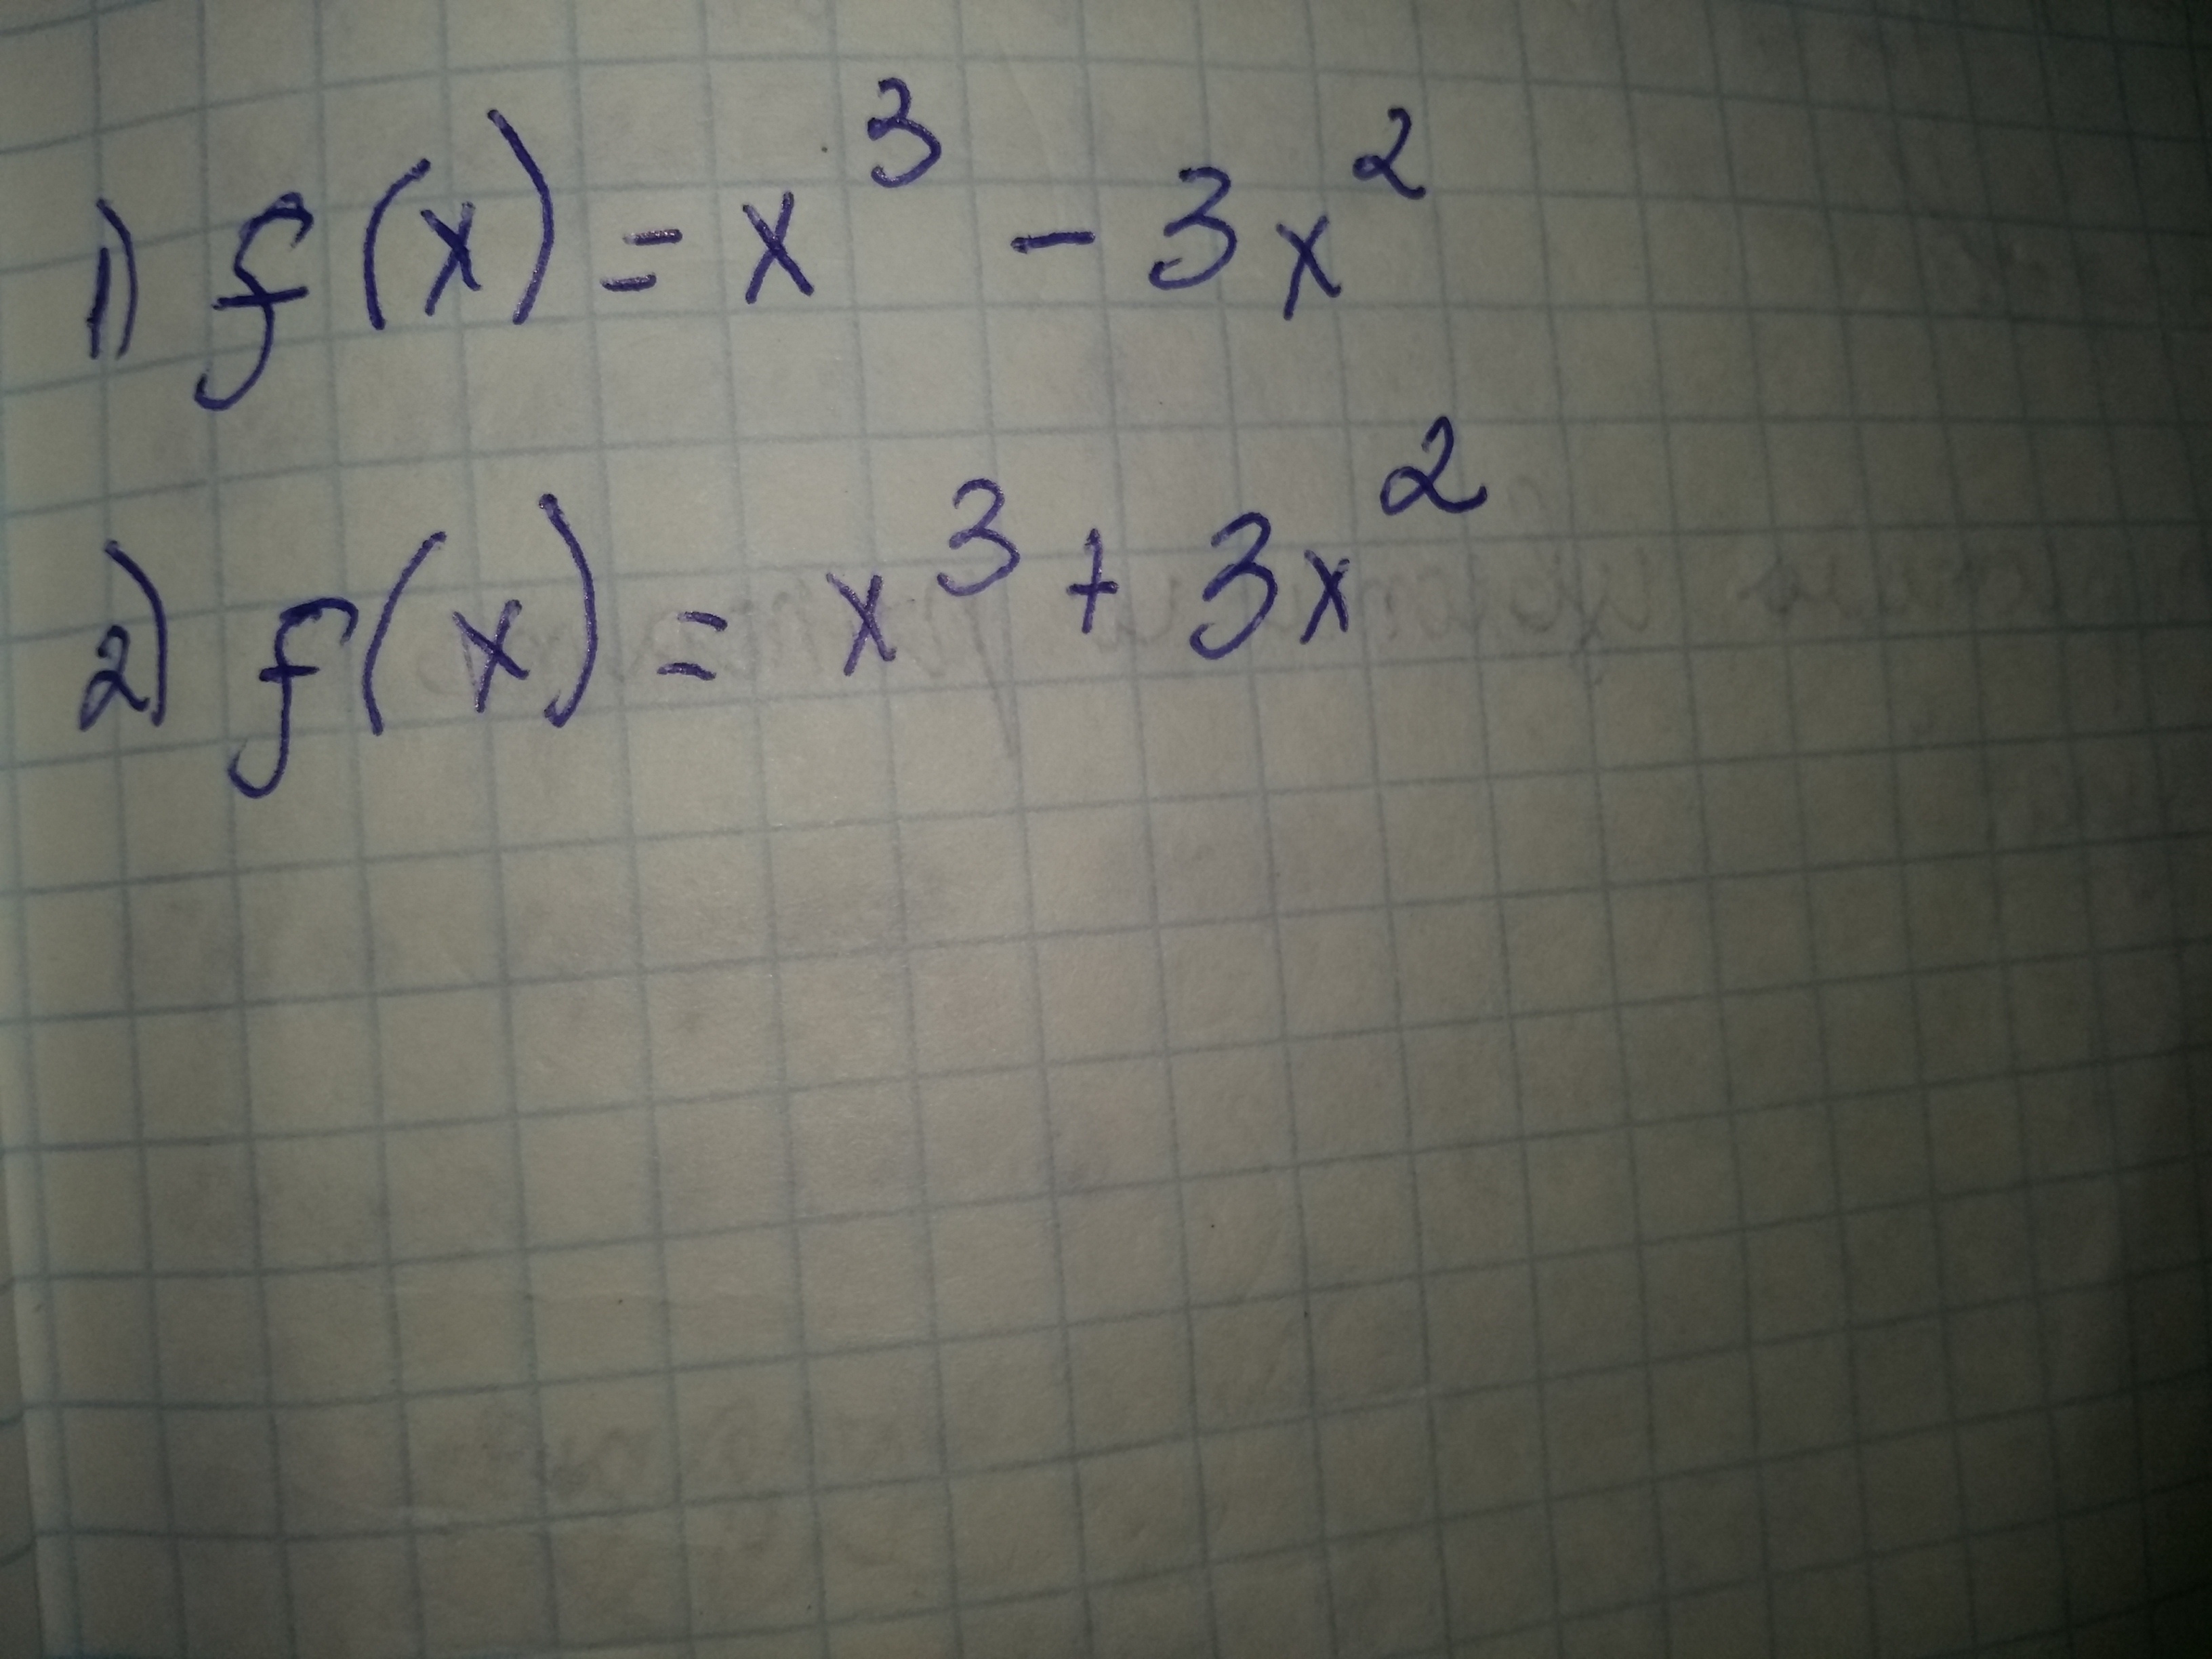 1) f(x) = x³ - 3x²
2) f(x) = x³ + 3x²